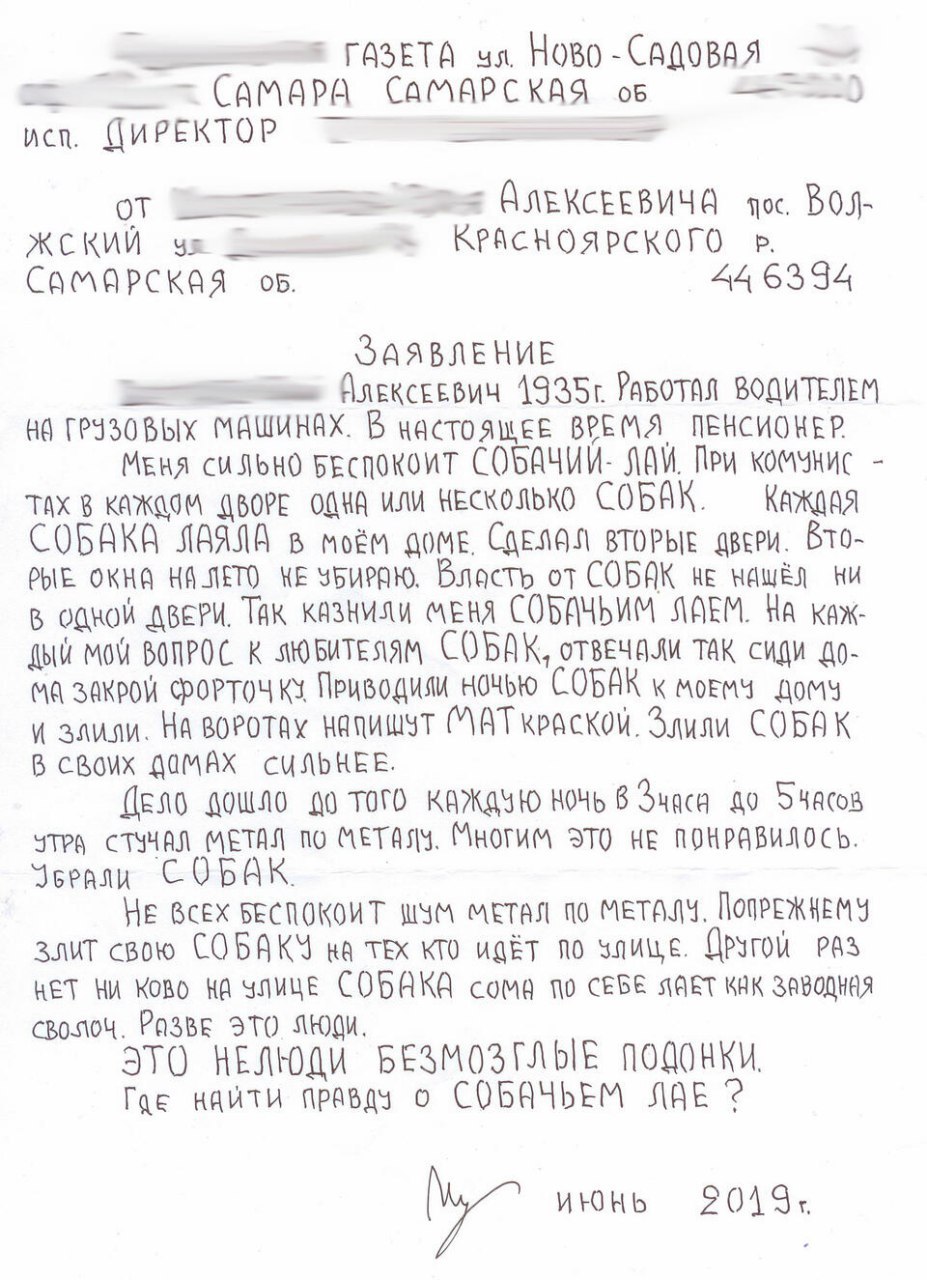 ГАЗЕТА ул. Ново-Садовая
Самара Самарская об
исп. Директор
от Алексеевича пос. Вол-
жский ул Красноярского р.
Самарская об. 446394
Заявление
Алексеевич 1935г. Работал водителем
на грузовых машинах. В настоящее время пенсионер.
Меня сильно беспокоит СОБАЧИЙ-ЛАЙ. При комунис-
тах в каждом дворе одна или несколько СОБАК. Каждая
СОБАКА ЛАЯЛА в моём доме. Сделал вторые двери. Вто-
рые окна на лето не убираю. Власть от СОБАК не нашёл ни
в одной двери. Так казнили меня СОБАЧЬИМ ЛАЕМ. На каж-
дый мой вопрос к любителям СОБАК, отвечали так сиди до-
ма закрой форточку. Приводили ночью СОБАК к моему дому
и злили. На воротах напишут МАТ краской. Злили СОБАК
в своих дамах сильнее.
Дело дошло до того каждую ночь в 3часа до 5часов
утра стучал метал по металу. Многим это не понравилось.
Убрали СОБАК.
Не всех беспокоит шум метал по металу. Попрежнему
злит свою СОБАКУ на тех кто идёт по улице. Другой раз
нет ни ково на улице СОБАКА сома по себе лает как заводная
сволоч. Разве это люди.
ЭТО НЕЛЮДИ БЕЗМОЗГЛЫЕ ПОДОНКИ.
Где найти правду о СОБАЧЬЕМ ЛАЕ?
июнь 2019г.